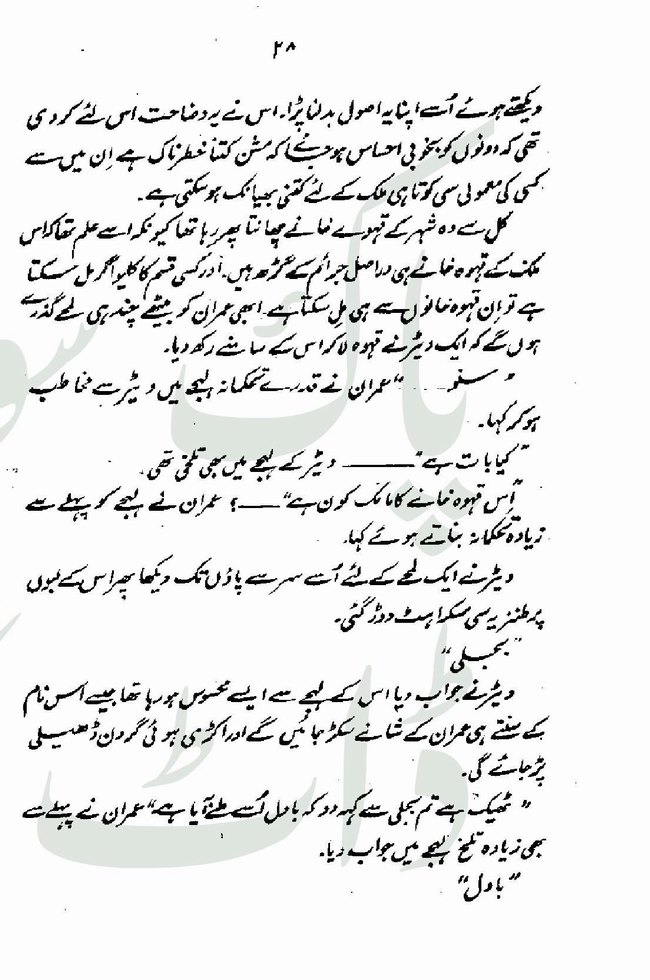 ۲۸
دیکھتے ہوئے اُسے اپنا یہ اصول بدلنا پڑا۔ اس نے یہ وضاحت اس لئے کر دی
تھی کہ دونوں کو بخوبی احساس ہو جائے کہ مشن کتنا خطرناک ہے اِن میں سے
کسی کی معمولی سی کوتاہی ملک کے لئے کتنی بھیانک ہو سکتی ہے۔
کل سے وہ شہر کے قہوے خانے چھانتا پھر رہا تھا کیونکہ اسے علم تھا کہ اس
ملک کے قہوہ خانے ہی دراصل جرائم کے گڑھ ہیں۔ اور کسی قسم کا کلیو اگر مل سکتا
ہے تو اِن قہوہ خانوں سے ہی مِل سکتا ہے۔ ابھی عمران کو بیٹھے چند ہی لمحے گذرے
ہوں گے کہ ایک ویٹر نے قہوہ لا کر اس کے سامنے رکھ دیا۔
" سنو۔۔۔ " عمران نے قدرے تحکمانہ لہجے میں ویٹر سے مخاطب
ہو کر کہا۔
" کیا بات ہے " ——— ویٹر کے لہجے میں بھی تلخی تھی۔
" اِس قہوہ خانے کا مالک کون ہے " ——؟ عمران نے لہجے کو پہلے سے
زیادہ تحکمانہ بناتے ہوئے کہا۔
ویٹر نے ایک لمحے کے لئے اُسے سر سے پاؤں تک دیکھا پھر اس کے لبوں
پر طنزیہ سی مسکراہٹ دوڑ گئی۔
" بجلی "
ویٹر نے جواب دیا اس کے لہجے سے ایسے محسوس ہو رہا تھا جیسے اس نام
کے سنتے ہی عمران کے شانے سکڑ جائیں گے اور اکڑی ہوئی گردن ڈھیلی
پڑ جائے گی۔
" ٹھیک ہے تم بجلی سے کہہ دو کہ بادل اُسے ملنے آیا ہے " عمران نے پہلے سے
بھی زیادہ تلخ لہجے میں جواب دیا۔
" بادل "